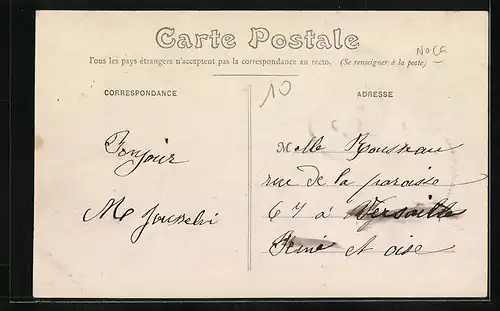 Carte Postale
Tous les pays étrangers n'acceptent pas la correspondance au recto. (Se renseigner à la poste)
10
CORRESPONDANCE
ADRESSE
Bonjour
M
Melle Rousseau
rue de la paroisse
67 à Versailles
Seine et oise